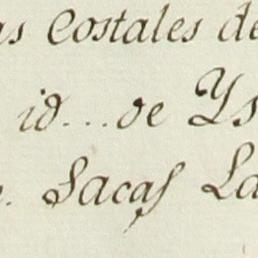 as Costales de
id...de Ys
Sacas La